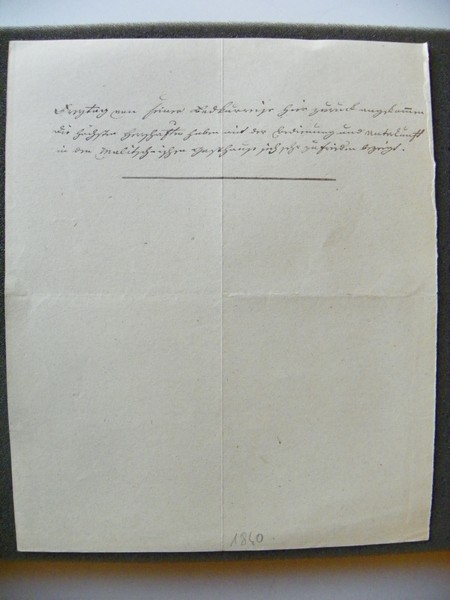 Freytag von seiner Badkurreise hier zurück angekommen
die höchsten Herrschaften haben mit der Bedienung und Unterkunft
in dem Gasthause sich sehr zufrieden bezeigt.
1840